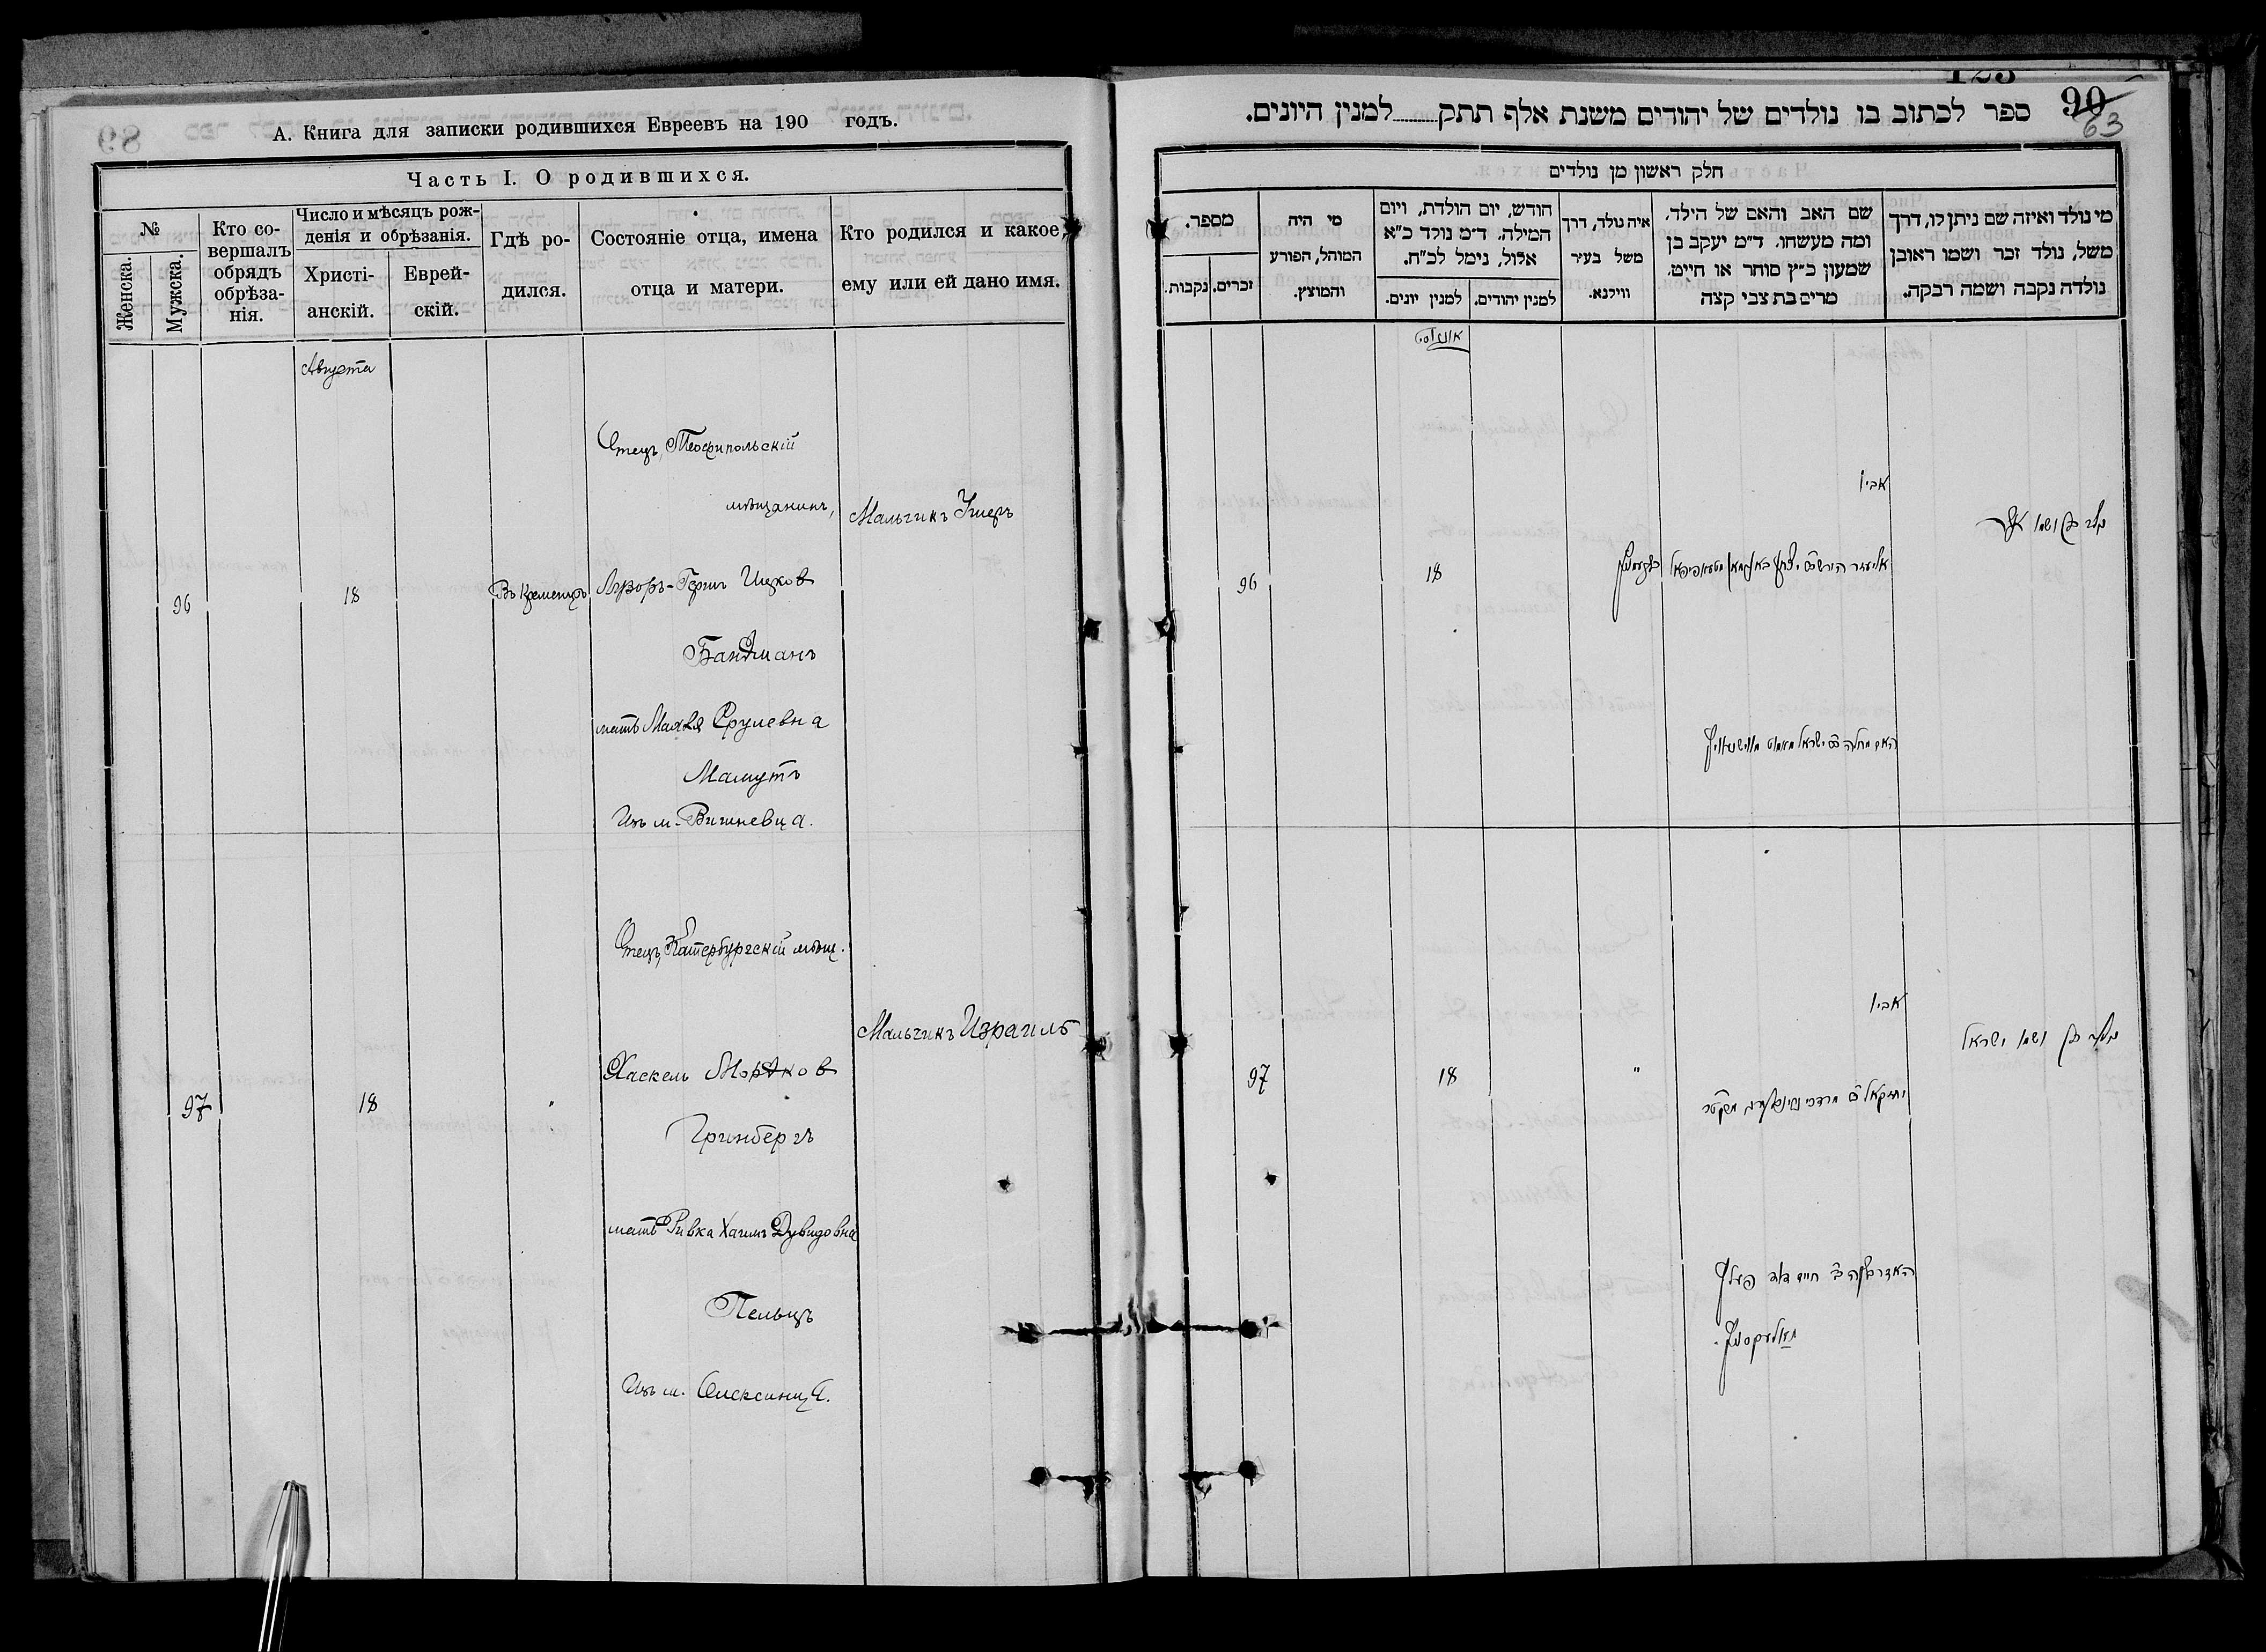 А. Книга для записки родившихся Евреевъ на 190 годъ.
Часть I. О родившихся.
№
Женска.
Мужска.
Кто со-
вершалъ
обрядъ
обрѣза-
нія.
Число и мѣсяцъ рож-
денія и обрѣзанія.
Христі-
анскій.
Еврей-
скій.
Гдѣ ро-
дился.
Состояніе отца, имена
отца и матери.
Кто родился и какое
ему или ей дано имя.
Августа
Отецъ, Теофипольскій
мѣщанинъ,
Мальчикъ Ушеръ
96 18 Въ Кременцѣ Лузоръ-Герш Ицков
Бандманъ
мать Махля Срулевна
Мамутъ
Изъ м. Вишневца.
Отецъ, Катербургскій мѣщ.
Мальчикъ Израиль
Хаскель Мордков
97 18 "
Гринбергъ
мать Ривка Хаимъ Дувидовна
Пельцъ
Изъ м. Олексинца.
123
90
63
ספר לכתוב בו נולדים של יהודים משנת אלף תתק למנין היונים.
חלק ראשון מן נולדים
מי נולד ואיזה שם ניתן לו, דרך
משל, נולד זכר ושמו ראובן
נולדה נקבה ושמה רבקה.
שם האב והאם של הילד,
ומה מעשהו. ד״מ יעקב בן
שמעון כ״ץ סוחר או חייט,
מרים בת צבי קצה
איה נולד, דרך
משל בעיר
ווילנא.
חודש, יום הולדת, ויום
המילה. ד״מ נולד כ״א
אלול, נימל לכ״ח.
למנין יהודים.
למנין יונים.
מי היה
המוהל, הפורע
והמוצץ.
מספר.
זכרים.
נקבות.
אויגוסט
אביו
ושמו אשר
96 18
אליעזר הירש
האם מחלה ב״ ישראל מאמוט
אביו
ושמו ישראל
97 18 "
יחזקאל ב״ מרדכי
חיים דוד פעלץ